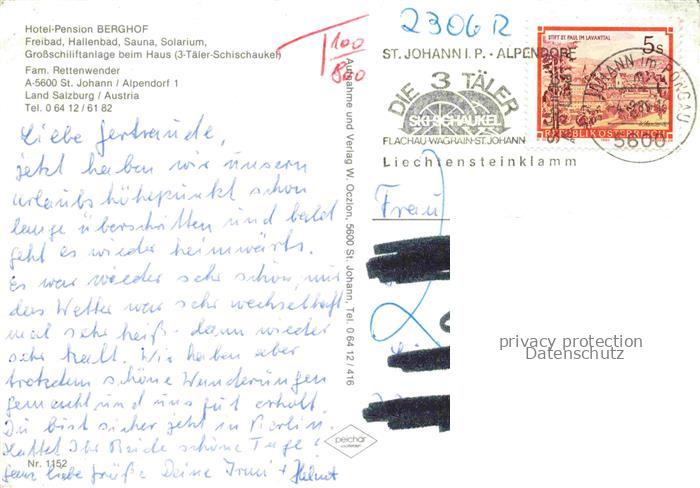 Hotel-Pension BERGHOF
Freibad, Hallenbad, Sauna, Solarium,
Großschiliftanlage beim Haus (3-Täler-Schischaukel)
Fam. Rettenwender
A-5600 St. Johann / Alpendorf 1
Land Salzburg / Austria
Tel. 0 64 12 / 61 82
Liebe Gertraude,
jetzt haben wir unsern
Urlaubshöhepunkt schon
lange überschritten und bald
geht es wieder heimwärts.
Es war wieder sehr schön, nur
das Wetter war sehr wechselhaft
mal sehr heiß - dann wieder
sehr kalt. Wir haben aber
trotzdem schöne Wanderungen
gemacht und uns gut erholt.
Du bist sicher jetzt in Berlin.
Hattet Ihr Beide schöne Tage?
Ganz liebe Grüße Deine Irmi + Helmut
Nr. 1152
Aufnahme und Verlag W. Oczlon, 5600 St. Johann, Tel. 0 64 12 / 416
peichär
T 100
800
2306R
ST. JOHANN I. P. - ALPENDORF
DIE 3 TÄLER
SKI-SCHAUKEL
FLACHAU-WAGRAIN-ST.JOHANN
Liechtensteinklamm
STIFT ST. PAUL IM LAVANTTAL
5s
REPUBLIK ÖSTERREICH
ST. JOHANN im PONGAU
5600
Frau
privacy protection
Datenschutz